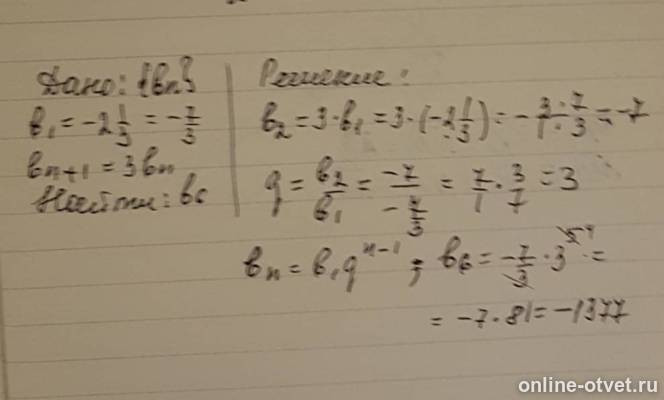 Дано: {bn}
b₁ = -2 1/3 = -7/3
bn+1 = 3bn
Найти: b6
Решение:
b₂ = 3·b₁ = 3·(-2 1/3) = -(3·7)/(1·3) = -7
q = b₂/b₁ = -7/(-7/3) = 7/1 · 3/7 = 3
bn = b₁q^(n-1); b6 = -7/3 · 3^5 4 =
= -7·81 = -1377
online-otvet.ru